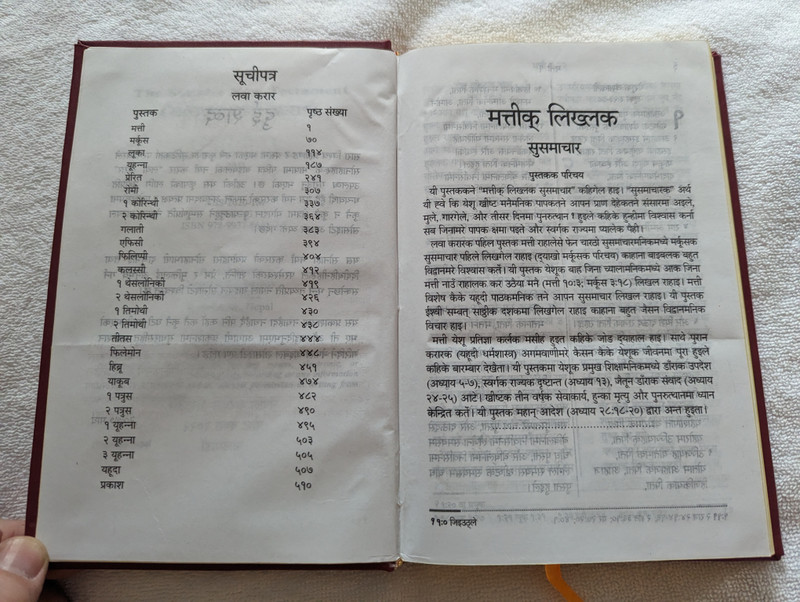 सूचीपत्र
लवा करार
पुस्तक पृष्ठ संख्या
मत्ती १
मर्कूस ७०
लूका ११४
यूहन्ना १८७
प्रेरित २४१
रोमी ३०७
१ कोरिन्थी ३३७
२ कोरिन्थी ३६४
गलाती ३८३
एफिसी ३९४
फिलिप्पी ४०४
कलस्सी ४१२
१ थेसलोनिकी ४१९
२ थेसलोनिकी ४२६
१ तिमोथी ४३०
२ तिमोथी ४३८
तीतस ४४४
फिलेमोन ४४८
हिब्रू ४५१
याकूब ४७४
१ पत्रुस ४८२
२ पत्रुस ४९०
१ यूहन्ना ४९५
२ यूहन्ना ५०३
३ यूहन्ना ५०५
यहूदा ५०७
प्रकाश ५१०
मत्तीक् लिख्लक
सुसमाचार
पुस्तकक परिचय
यी पुस्तककने "मत्तीक् लिखलक सुसमाचार" कहिगेल हाइ। "सुसमाचारक" अर्थ
यी ह्वे कि येशू ख्रीष्ट मनेमनिक पापकतने आपन प्राण देहेकतने संसारमा अइले,
मुले, गारगेले, और तीसर दिनमा पुनरुत्थान । हुइले कहिके हुन्होमा विश्वास कर्ना
सव जिनामरे पापक क्षमा पइते और स्वर्गक राज्यमा प्यालेक पैही।
लवा करारक पहिल पुस्तक मत्ती राहालेसे फेन चारठो सुसमाचारमनिकमध्ये मर्कूसक
सुसमाचार पहिले लिखगेल राहाइ (द्याखो मर्कूसक परिचय) काहाना बाइबलक बहुत
विद्वानमरे विश्वास कर्ते। यी पुस्तक येशूक बाह्र जिना च्यालामनिकमध्ये आक जिना
मत्ती नाउँ राहालक कर उठैया मने (मत्ती १०ः३; मर्कूस ३ः१८) लिखल राहाइ। मत्ती
विशेष कैके यहूदी पाठकमनिक तने आपन सुसमाचार लिखल राहाइ। यी पुस्तक
ईस्वी सम्वत् साठ्ठीक दशकमा लिखगेल राहाइ काहाना बहुत जेसन विद्वानमनिक
विचार हाइ।
मत्ती येशू प्रतिज्ञा कर्लक मसीह हुइत कहिके जोड द्याहाल हाइ। साथे पुरान
करारक (यहूदी धर्मशास्त्र) अगमवाणीमरे कैसन केके येशूक जीवनमा पूरा हुइले
कहिके बारम्बार देखैता। यी पुस्तकमा येशूक प्रमुख शिक्षामनिकमध्ये डाँराक उपदेश
(अध्याय ५-७), स्वर्गक राज्यक दृष्टान्त (अध्याय १३), जैतून डाँराक संवाद (अध्याय
२४-२५) आटे। ख्रीष्टक तीन वर्षक सेवाकार्य, हुन्का मृत्यु और पुनरुत्थानमा ध्यान
केन्द्रित कर्ते। यी पुस्तक महान् आदेश (अध्याय २८ः१८-२०) द्वारा अन्त हुइता।
†१ः० जिइउठ्ले